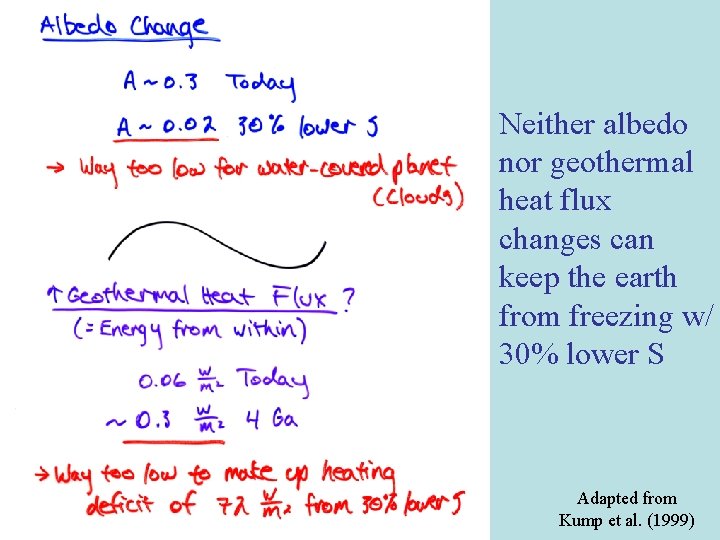 Albedo Change
A ~ 0.3 Today
A ~ 0.02 30% lower S
→ Way too low for water-covered planet
(clouds)
↑ Geothermal Heat Flux?
(= Energy from within)
0.06 W/m² Today
~ 0.3 W/m² 4 Ga
→ Way too low to make up heating
deficit of 72 W/m² from 30% lower S
Neither albedo
nor geothermal
heat flux
changes can
keep the earth
from freezing w/
30% lower S
Adapted from
Kump et al. (1999)